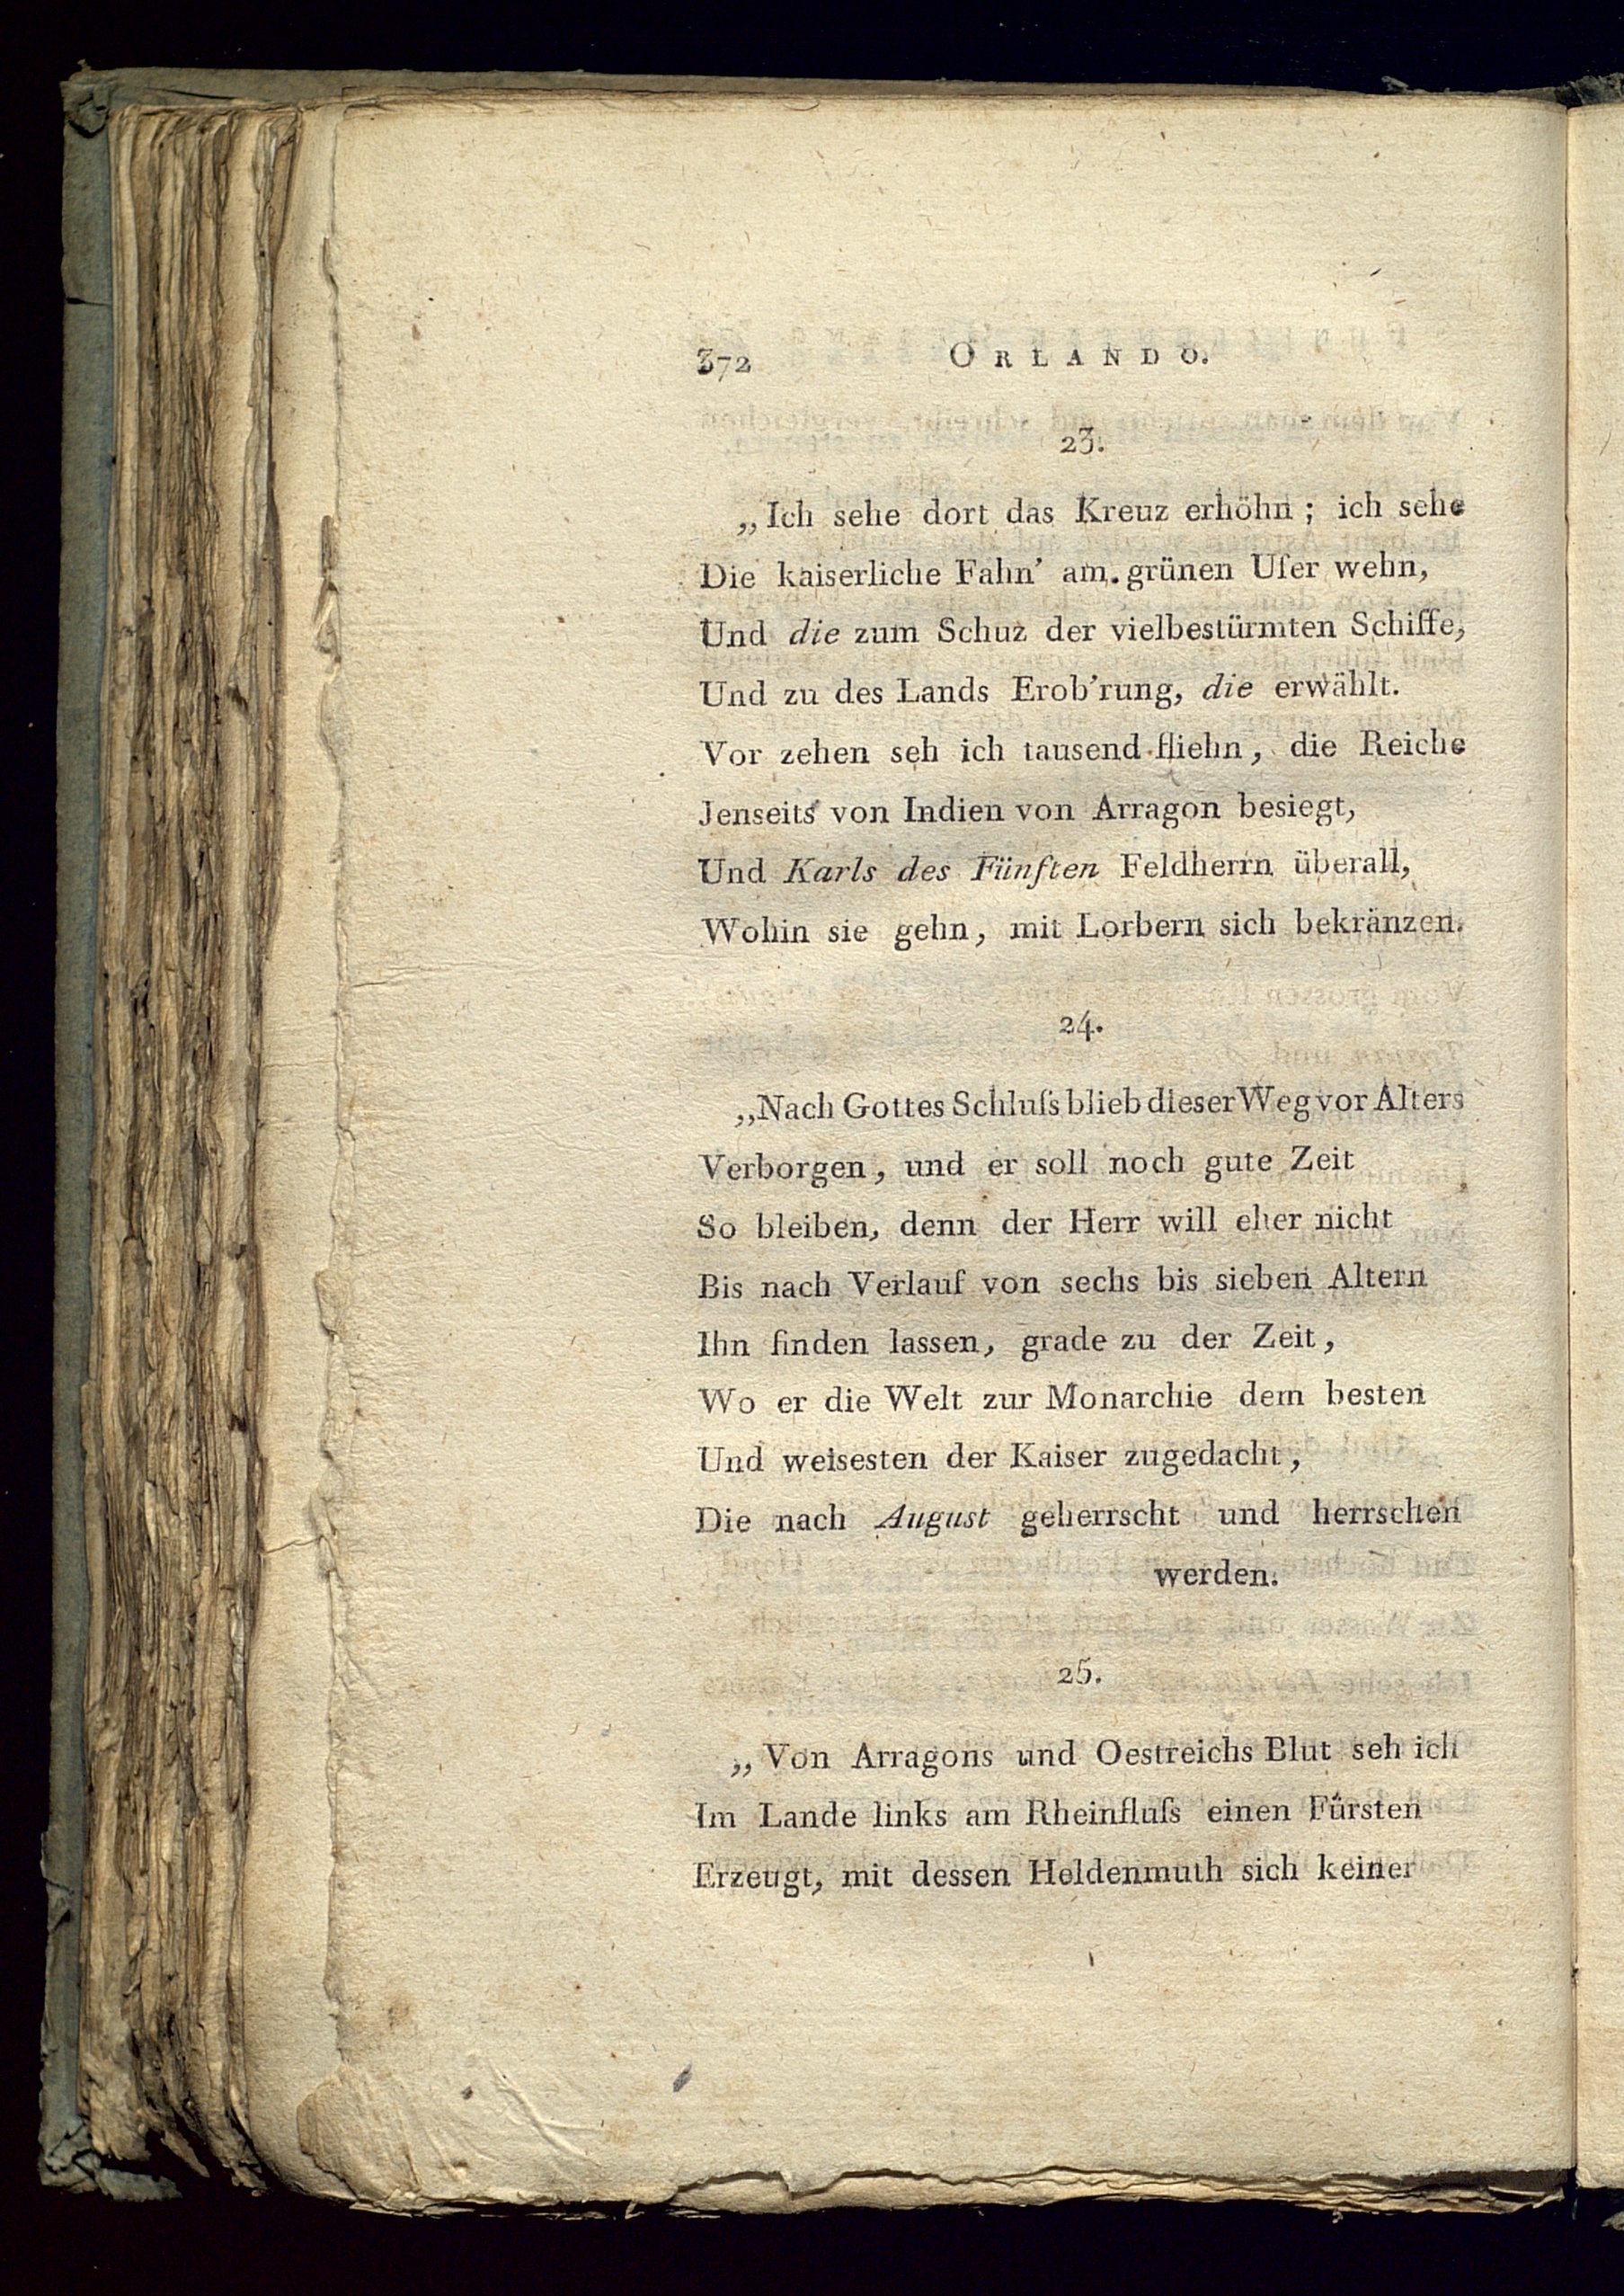 372 ORLANDO.
23.
„Ich sehe dort das Kreuz erhöhn; ich sehe
Die kaiserliche Fahn’ am grünen Ufer wehn,
Und die zum Schuz der vielbestürmten Schiffe,
Und zu des Lands Erob’rung, die erwählt.
Vor zehen seh ich tausend fliehn, die Reiche
Jenseits von Indien von Arragon besiegt,
Und Karls des Fünften Feldherrn überall,
Wohin sie gehn, mit Lorbern sich bekränzen.
24.
„Nach Gottes Schluſs blieb dieser Weg vor Alters
Verborgen, und er soll noch gute Zeit
So bleiben, denn der Herr will eher nicht
Bis nach Verlauf von sechs bis sieben Altern
Ihn finden lassen, grade zu der Zeit,
Wo er die Welt zur Monarchie dem besten
Und weisesten der Kaiser zugedacht,
Die nach August geherrscht und herrschen
werden.
25.
„Von Arragons und Oestreichs Blut seh ich
Im Lande links am Rheinfluſs einen Fürsten
Erzeugt, mit dessen Heldenmuth sich keiner